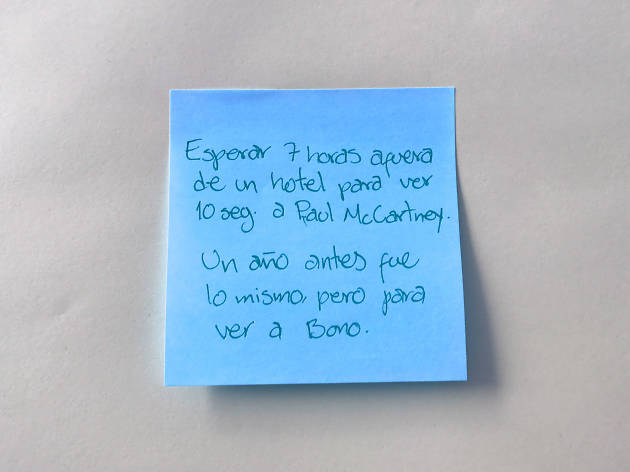 Esperar 7 horas afuera
de un hotel para ver
10 seg. a Paul McCartney.
Un año antes fue
lo mismo, pero para
ver a Bono.